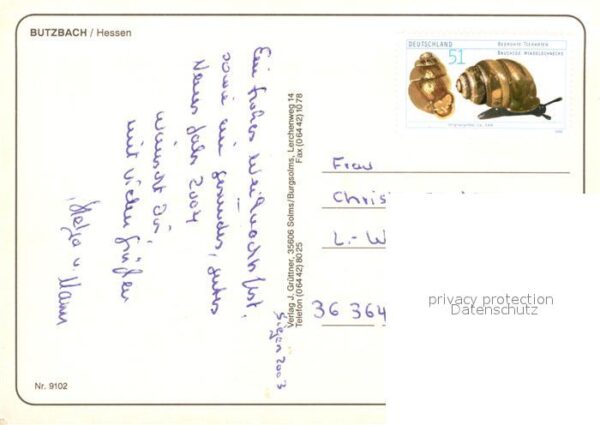 BUTZBACH / Hessen
DEUTSCHLAND
51
BEDROHTE TIERARTEN
BAUCHIGE WINDELSCHNECKE
Ein frohes Weihnachtsfest,
sowie ein gesundes, gutes
Neues Jahr 2004
wünscht Dir,
mit vielen Grüßen
Helga u. Mann
Siegen 2003
Verlag J. Grüttner, 35606 Solms/Burgsolms, Lerchenweg 14
Telefon (0 64 42) 80 25 Fax (0 64 42) 10 78
Frau
Chris
L.- W
36 364
privacy protection
Datenschutz
Nr. 9102